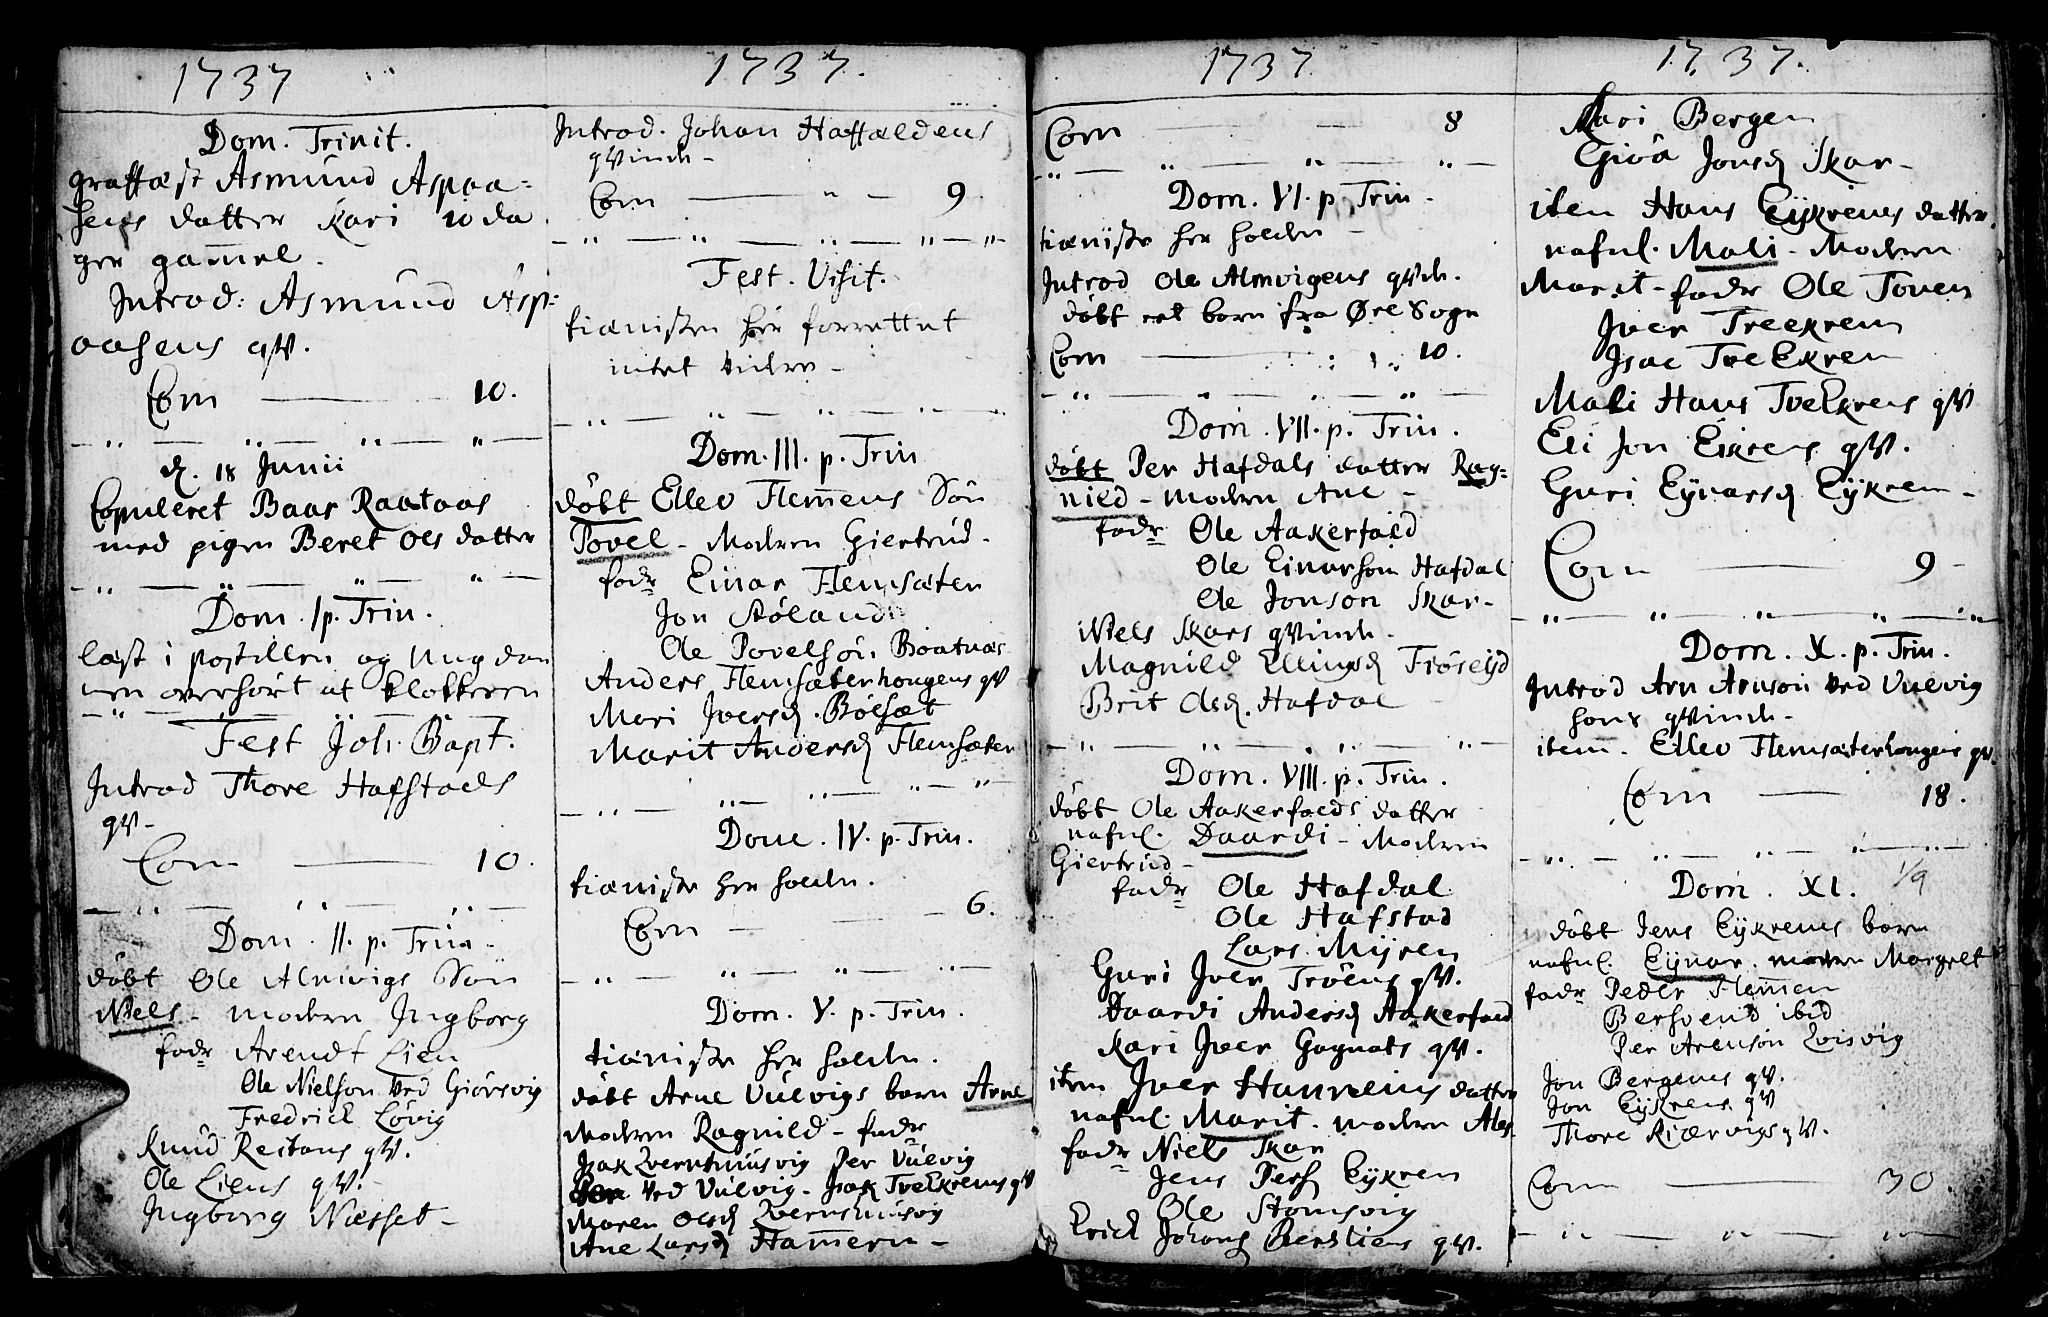 1737
Dom. Trinit.
graffæst Asmund Aspaa-
sens datter Kari 10 da
ger gam̅el.
Introd: Asmund Asp-
aasens qv.
Com 10.
d. 18 Junii
Copuleret Baar Raataas
med pigen Beret Oes datter
Dom. I p. Trin.
læst i postillen og Ungdom
men overhørt af klokkeren
Fest Joh. Bapt.
Introd Thore Hafstads
qv-
Com 10.
Dom. II. p. Trin.
döbt Ole Almvigs Sön
Niels - moderen Ingborg
fadr Arendt Lien
Ole Nielson ved Giörsvig
Fredrick Lövig
Knud Reitans qv.
Ole Liens qv.
Ingborg Næsset-
1737.
Introd. Johan Haffældens
qvinde-
Com 9.
Fest. Visit.
tienisten her forrettet
intet videre-
Dom. III. p. Trin
döbt Ellev Flem̅ens Sön
Povel - Moderen Giertrud-
fadr Einar Flemsæter
Jon Stöland
Ole Povelsön Boatnæs
Anders Flemsæterhougens qv
Mari Iversd. Bölsæt
Marit Andersd Flemsæter
Dom. IV. p. Trin.
tieniste her holden.
Com 6.
Dom. V. p. Trin.
tieniste her holden.
döbt Arne Vulvigs barn Arne
Moderen Ragnild - fadr
Isak Qvernhusvig Per Vulvig
ved Vulvig - Isak Tveekrens qv
Maren Olsd Qvernhusvig
Ane Larsd Ham̅eren-
1737
Com 8
Dom. VI. p. Trin.
tieniste her holden -
Introd Ole Almvigens qvde.
döbt eet barn fra Øre Sogn
Com 10.
Dom. VII. p. Trin.
döbt Per Hafdals datter Rag-
nied - moderen Ane -
fadr Ole Aakerfald
Ole Einarson Hafdal
Ole Jonson Skar-
Niels Skars qvinde-
Magnild Ellingsd Fröseyd
Brit Olsd. Hafdal
Dom. VIII. p. Trin.
döbt Ole Aakerfalds datter
nafnl. Daardi - Moderen
Giertrud-
fadr Ole Hafdal
Ole Hafstad
Lars Myren
Guri Iver Tröens qv.
Daardi Andersd Aakerfald
Kari Iver Gagnats qv.
item Iver datter
nafnl. Marit. moderen Ales
fadr Niels Skar
Jens Pers Eykrem
Ole Stomsvig
Erick Johans Berstiens qv.
1737.
Kari Bergen
Giöa Jonsd Skar-
item Hans Eykrems datter
nafnl. Mali - Moderen
Marit - fadr Ole Toven
Iver Treekrem
Isac Tveekrem
Mali Hans Tveekrens qv
Eli Jon Eikrens qv.
Guri Eynarsd Eykrem-
Com 9-
Dom. X. p. Trin.
Introd Arn Arnson ved Vulvig
hans qvinde-
item. Ellev Flemsæterhougens qv.
Com 18.
Dom. XI. 1/9
döbt Jens Eykrems barn
nafnl. Eynar. moderen Margret
fadr Peder Flem̅en
Bersvend ibid
Per Arenson Qvisvig
Jon Bergens qv.
Jon Eykrens qv
Thore Kiærvigs qv.
Com 30.